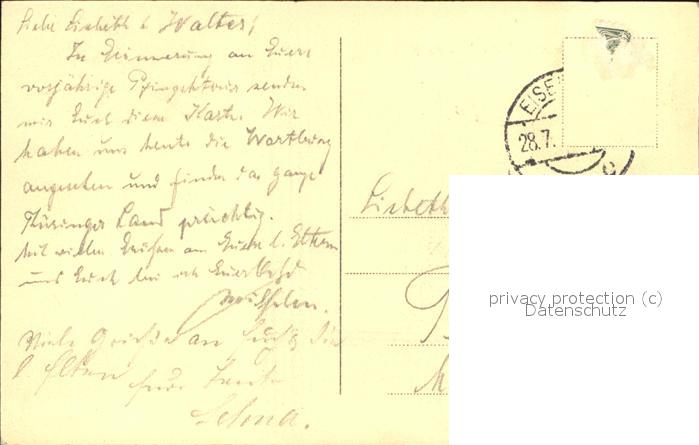 Liebe Lisbeth & Walter!
In Erinnerung an Euere
vorjährige Pfingsttour senden
wir Euch diese Karte. Wir
haben uns heute die Wartburg
angesehen und finden das ganze
Thüringer Land prächtig.
Mit vielen Grüßen an Euere l. Eltern
und Euch bin ich Euer
Wilhelm.
Viele Grüße an Euch & die
l. Eltern Eure Tante
Selma.
EISE
28.7.
C
Lisbeth
privacy protection (c)
Datenschutz